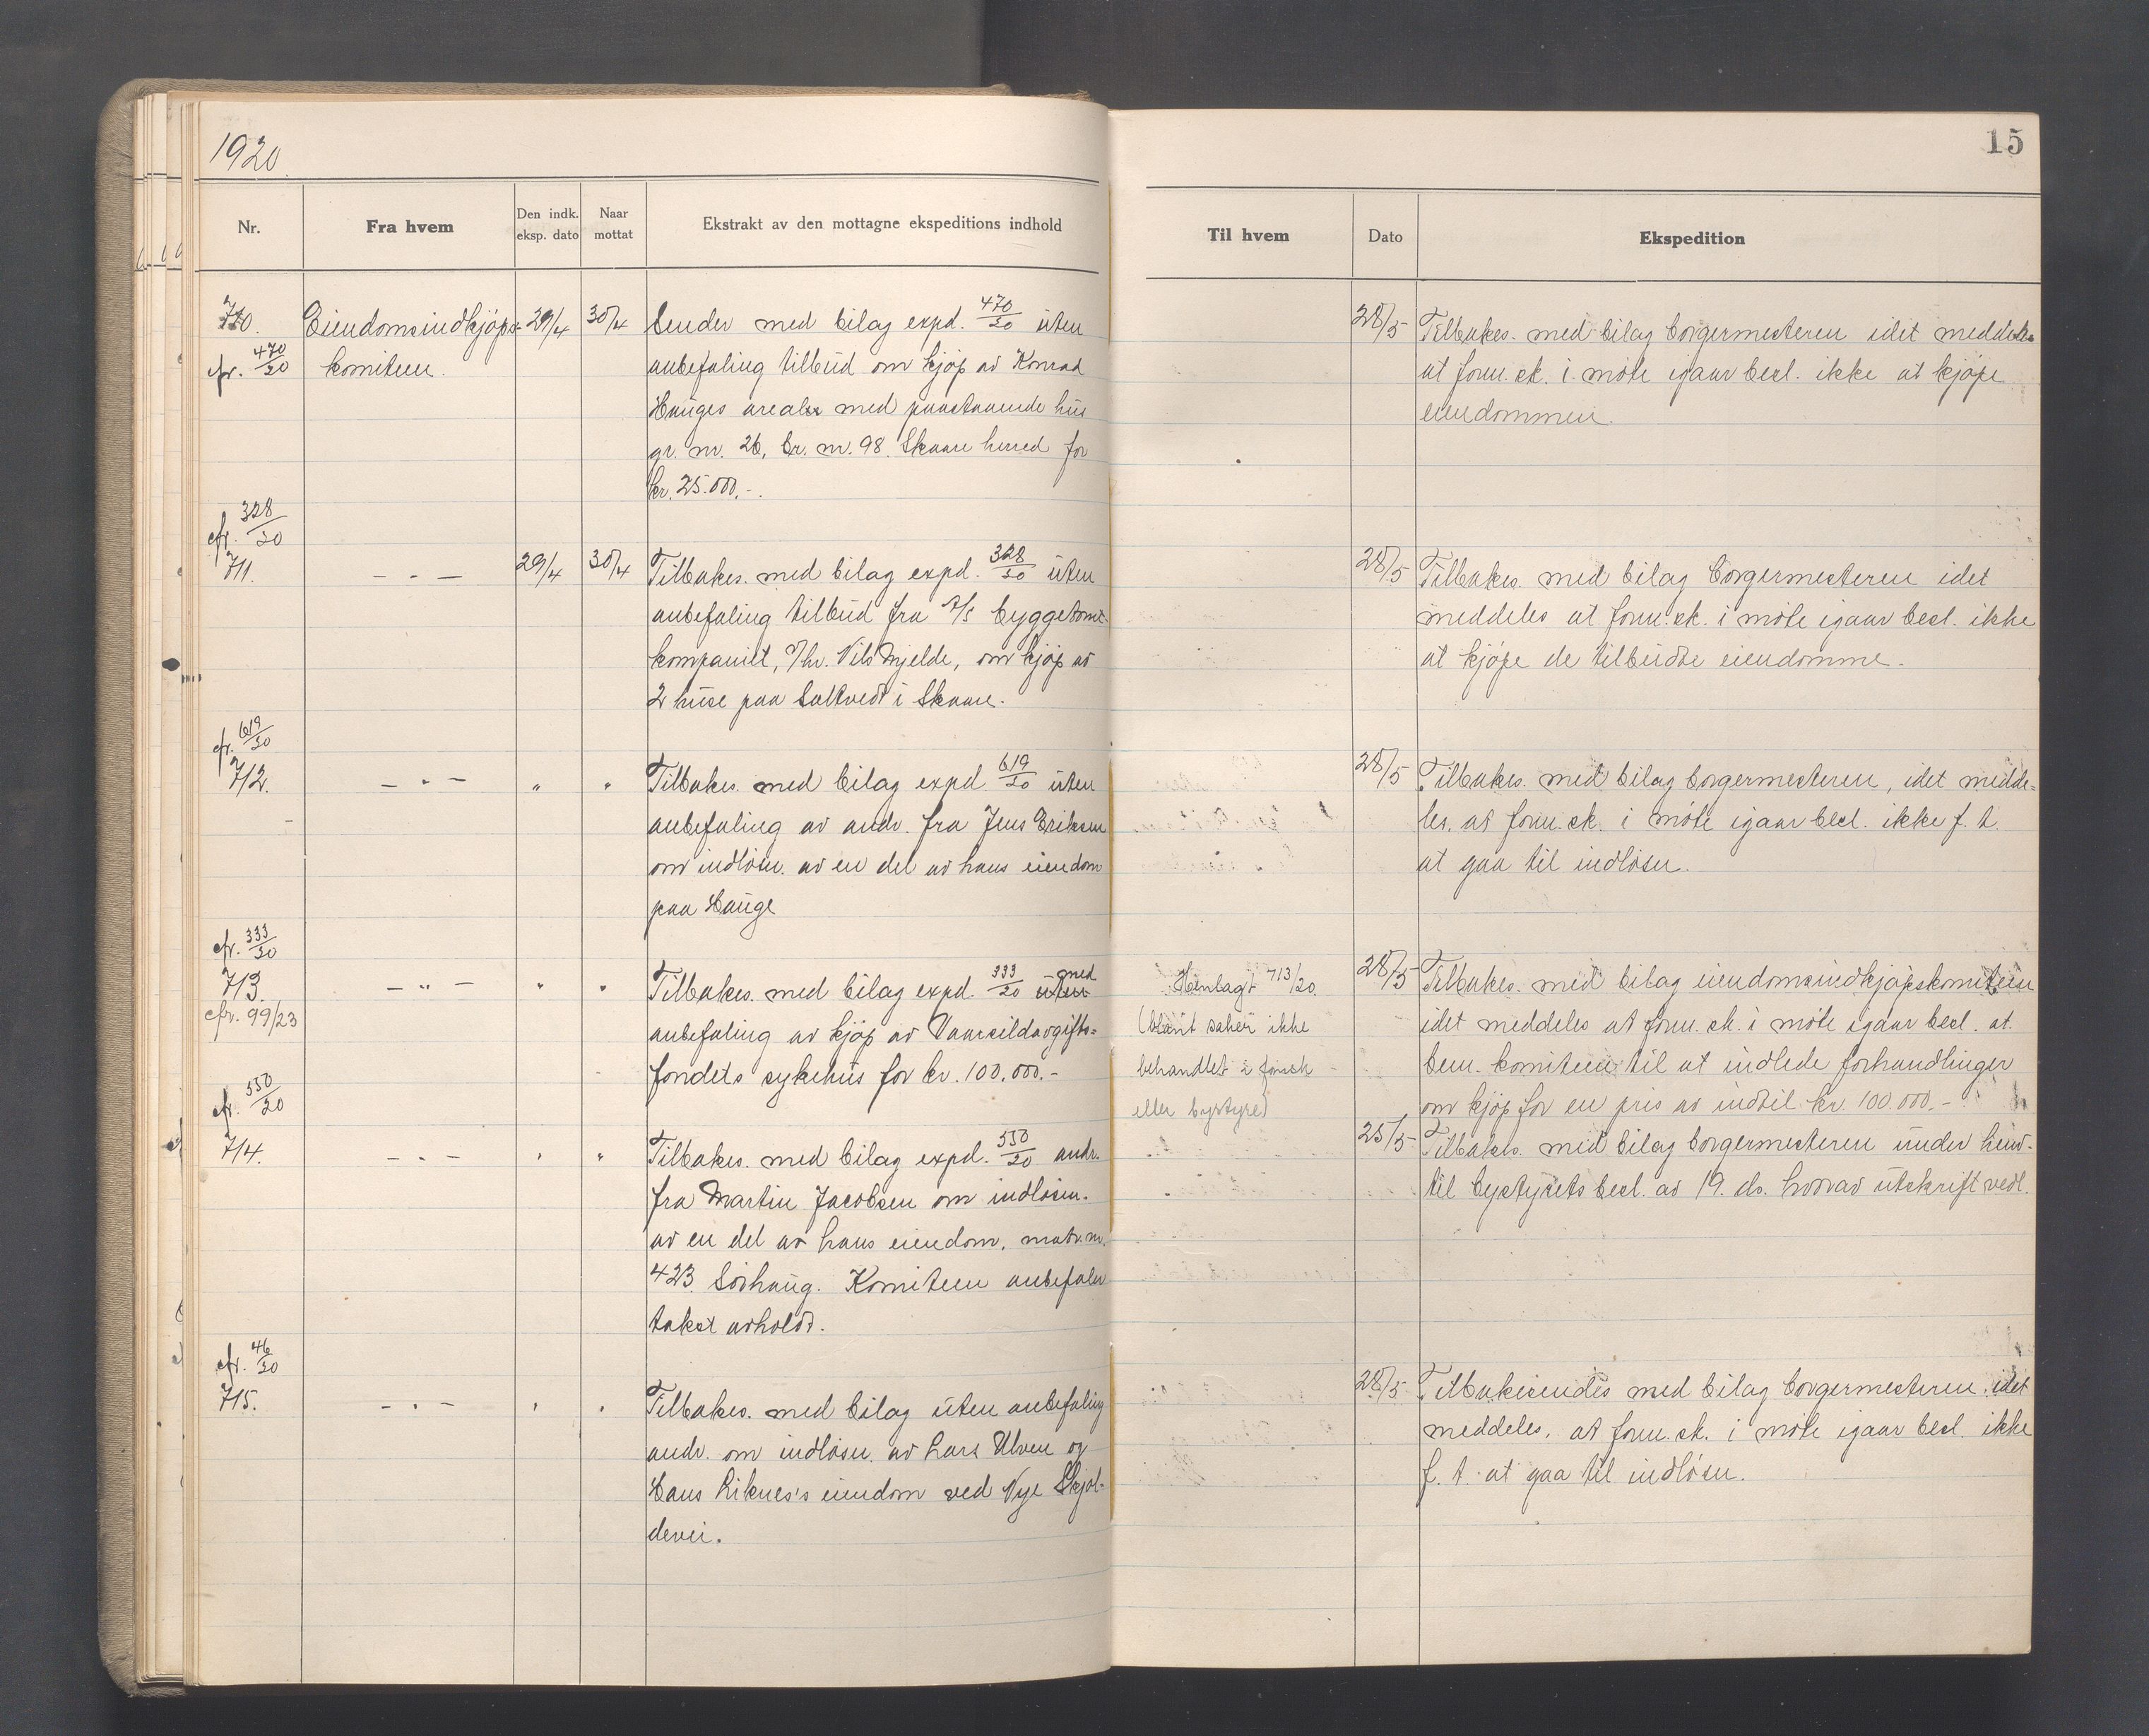 1920.
15
Nr.
Fra hvem
Den indk. eksp. dato
Naar mottat
Ekstrakt av den mottagne ekspeditions indhold
Til hvem
Dato
Ekspedition
710.
cfr. 470/20
Eiendomsindkjøps-
komiteen.
29/4
30/4
Sender med bilag expd. 470/20 uten
anbefaling tilbud om kjøp av Konrad
Hauges arealer med paastaaende hus
gr. nr. 26, br. nr. 98. Skaare herred for
kr. 25.000.-.
28/5
Tilbakes. med bilag borgermesteren idet meddeles
at form.sk. i møte igaar besl. ikke at kjøpe
eiendommen.
cfr. 328/20
711.
— " —
29/4
30/4
Tilbakes. med bilag expd. 328/20 uten
anbefaling tilbud fra A/S byggetomt-
kompaniet, v/hr. Nils Mjelde, om kjøp av
2 huse paa Saltvedt i Skaare.
28/5
Tilbakes. med bilag borgermesteren idet
meddeles at form.sk. i møte igaar besl. ikke
at kjøpe de tilbudte eiendomme.
cfr. 619/20
712.
— " —
"
"
Tilbakes. med bilag expd. 619/20 uten
anbefaling av andr. fra Jens Eriksen
om indløsn. av en del av hans eiendom
paa Hauge
28/5
Tilbakes. med bilag borgermesteren, idet medde=
les. at form.sk. i møte igaar besl. ikke f. t.
at gaa til indløsn.
cfr. 333/20
713.
cfr. 99/23
— " —
"
"
Tilbakes. med bilag expd. 333/20 uten med
anbefaling av kjøp av Vaarsildavgifts=
fondets sykehus for kr. 100.000.-
Henlagt 713/20.
(blant saker ikke
behandlet i formsk
eller bystyre)
28/5
Tilbakes. med bilag eiendomsindkjøpskomiteen
idet meddeles at form.sk. i møte igaar besl. at
bem. komiteen til at indlede forhandlinger
om kjøp for en pris av indtil kr. 100.000.-
cfr. 550/20
714.
— " —
"
"
Tilbakes. med bilag expd. 550/20 andr.
fra Martin Jacobsen om indløsn.
av en del av hans eiendom, matr. nr.
423 Sørhaug. Komiteen anbefaler
takst avholdt.
25/5
Tilbakes. med bilag borgermesteren under henv.
til bystyrets besl. av 19. ds. hvorav utskrift vedl.
cfr. 46/20
715.
— " —
"
"
Tilbakes. med bilag uten anbefaling
andr. om indløsn. av Lars Ulven og
Hans Liknes's eiendom ved Nye Skjol-
devei.
28/5
Tilbakesendes med bilag borgermesteren, idet
meddeles, at form.sk. i møte igaar besl. ikke
f. t. at gaa til indløsn.